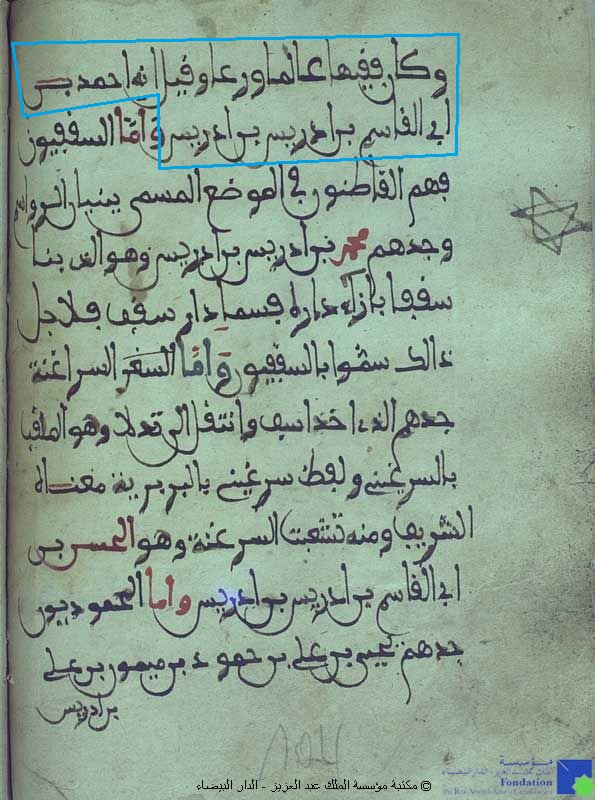 وكان فقيها عالما ورعا وقيل انه احمد بن
ابي القاسم بن ادريس بن ادريس واما السقفيون
فهم القاطنون في الموضع المسمى
وجدهم محمد بن ادريس بن ادريس وهو الذي بنا
سقفا بازاء داره فسما دار سقف فلاجل
ذالك سموا بالسقفيون واما السراغنة
جدهم الذي اخذ اسيف وانتقل الى تدلا وهو الملقب
بالسرغيني ولفظ سرغيني بالبربرية معناه
الشريف ومنه تشعبت السرغنة وهو الحسن بن
ابي القاسم بن ادريس بن ادريس واما الحموديون
جدهم يحيى بن علي بن حمود بن ميمون بن علي
بن ادريس
مؤسسة
الملك عبد العزيز - الدار البيضاء
Fondation
du Roi Abdul-Aziz - Casablanca
© مكتبة مؤسسة الملك عبد العزيز - الدار البيضاء